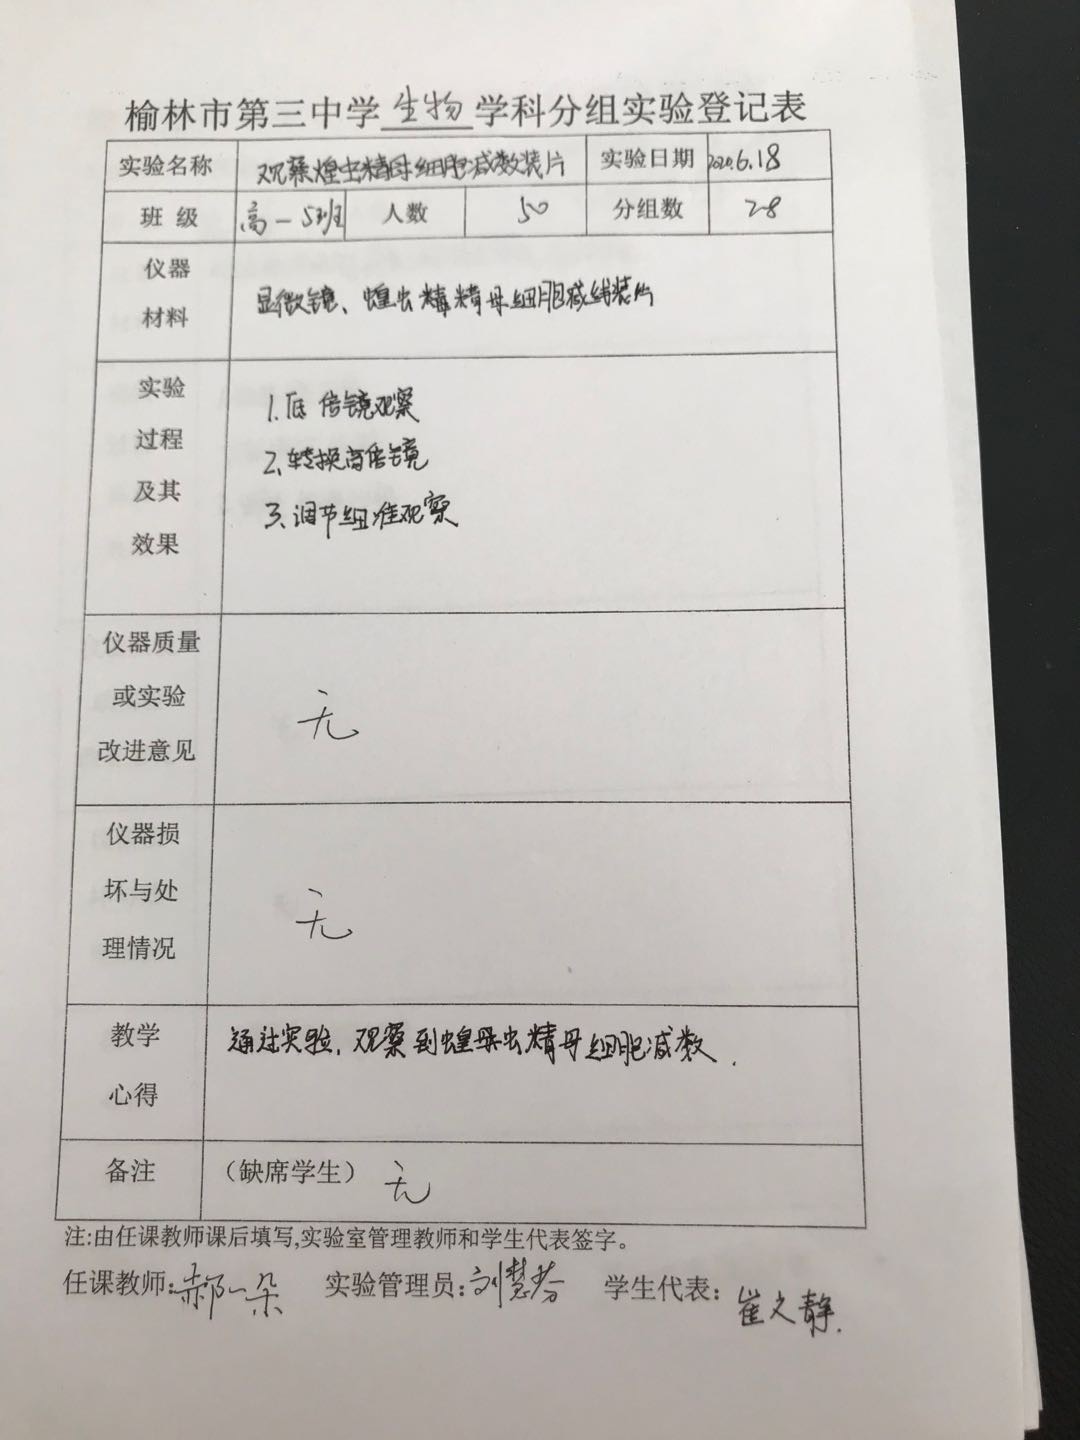 榆林市第三中学生物学科分组实验登记表
实验名称 观察蝗虫精母细胞减数装片 实验日期 2020.6.18
班 级 高一5班 人数 50 分组数 28
仪器
材料
显微镜、蝗虫精母细胞减数装片
实验
过程
及其
效果
1.低倍镜观察
2.转换高倍镜
3.调节细准观察
仪器质量
或实验
改进意见
无
仪器损
坏与处
理情况
无
教学
心得
通过实验,观察到蝗虫精母细胞减数.
备注 (缺席学生) 无
注:由任课教师课后填写,实验室管理教师和学生代表签字。
任课教师:郝一朵 实验管理员:刘慧芬 学生代表:崔文静.